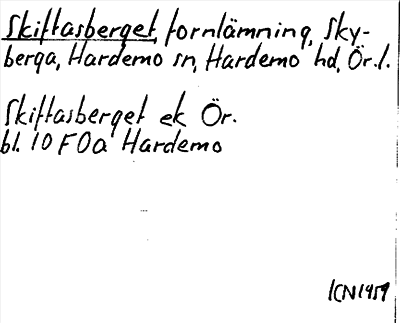 Skiftasberget, fornlämning, Sky-
berga, Hardemo sn, Hardemo hd, Ör. l.
Skiftasberget ek Ör.
bl. 10 F 0a Hardemo
ICN 1959